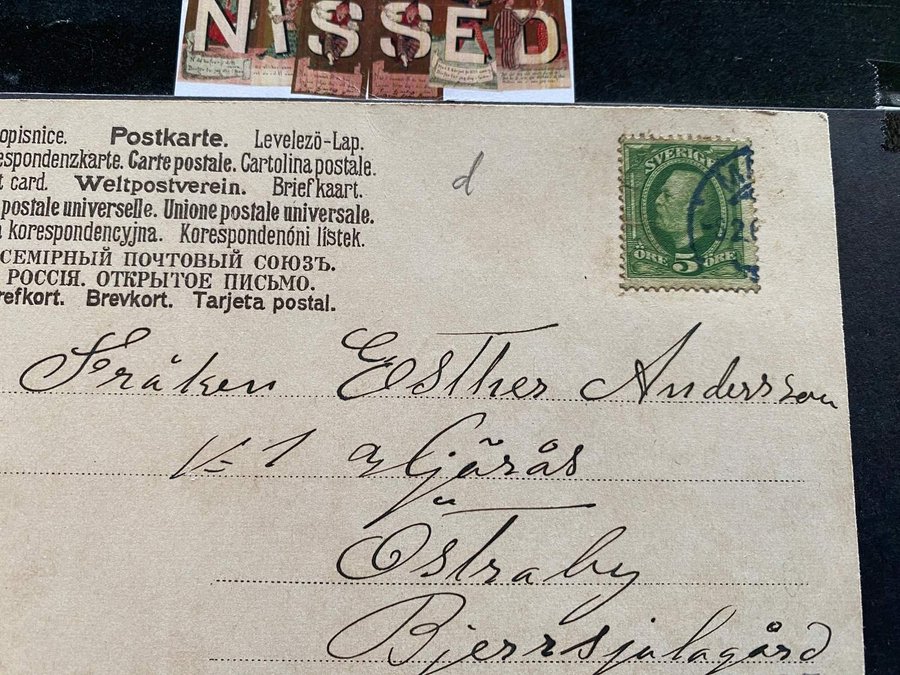 NISSED
opisnice. Postkarte. Levelezö-Lap.
espondenzkarte. Carte postale. Cartolina postale.
t card. Weltpostverein. Briefkaart.
postale universelle. Unione postale universale.
a korespondencyjna. Korespondenóni lístek.
СЕМІРНЫЙ ПОЧТОВЫЙ СОЮЗЪ.
РОССІЯ. ОТКРЫТОЕ ПИСЬМО.
refkort. Brevkort. Tarjeta postal.
d
SVERIGE
ÖRE 5 ÖRE
Fröken Esther Andersson
Östraby
Bjerrsjölagård